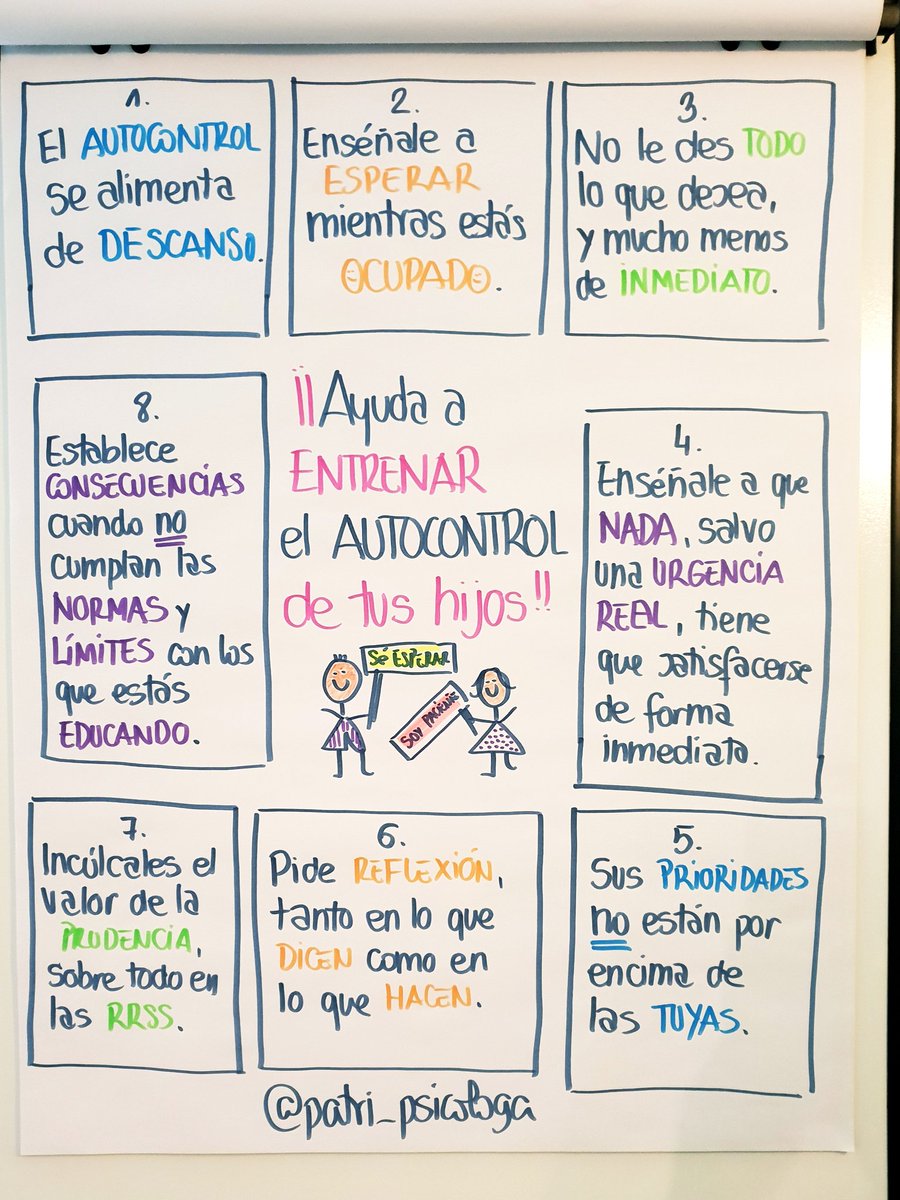 1.
El AUTOCONTROL
se alimenta
de DESCANSO.
2.
Enséñale a
ESPERAR
mientras estás
OCUPADO.
3.
No le des TODO
lo que desea,
y mucho menos
de INMEDIATO.
¡¡Ayuda a
ENTRENAR
el AUTOCONTROL
de tus hijos!!
SÉ ESPERAR
SOY PACIENTE
4.
Enséñale a que
NADA, salvo
una URGENCIA
REAL, tiene
que satisfacerse
de forma
inmediato.
5.
Sus PRIORIDADES
no están por
encima de
las TUYAS.
6.
Pide REFLEXIÓN,
tanto en lo que
DICEN como en
lo que HACEN.
7.
Incúlcales el
valor de la
PRUDENCIA,
sobre todo en
las RRSS.
8.
Establece
CONSECUENCIAS
cuando no
cumplan las
NORMAS y
LÍMITES con los
que estás
EDUCANDO.
@patri_psicologa